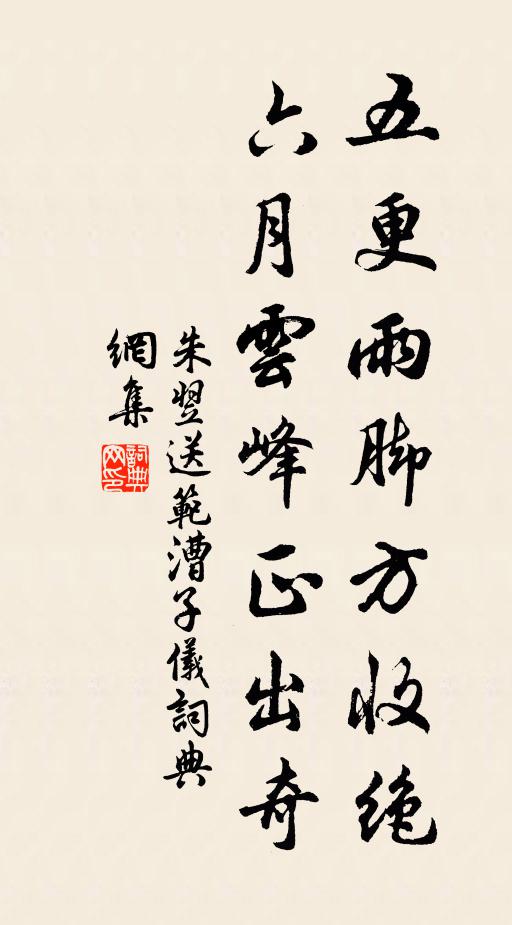 五更雨脚方收绝
六月雲峰正出奇
朱翌送範漕子儀詞典
網集
詞典
网印